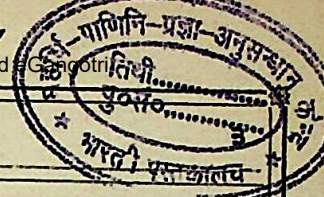 d eGangotri
पाणिनि-प्रज्ञा-अनुसन्धान
तिथी..............
पु०सं०..............
भारती पुस्तकालय